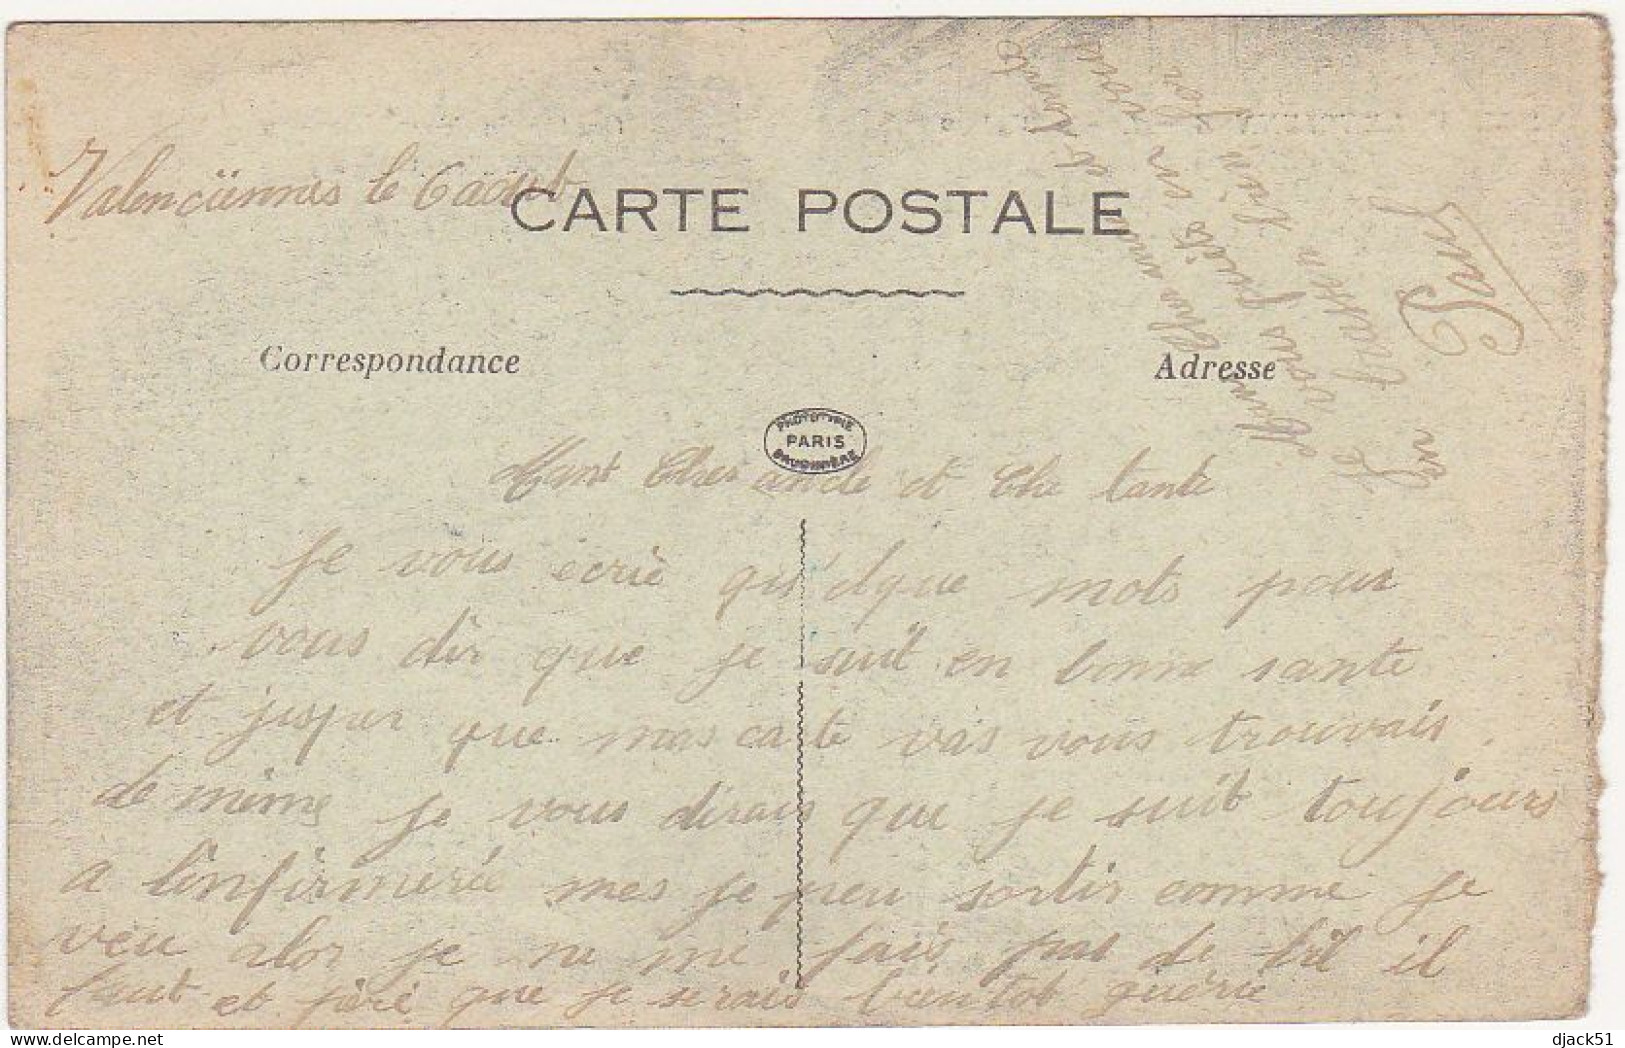 Valenciennes le 6 aout
CARTE POSTALE
Correspondance
Adresse
PHOTOTYPIE
PARIS
Mont Cher oncle et Che tante
Je vous ecrie quelque mots pour
vous dir que je suit en bonne sante
et jesper que mas carte vas vous trouvais
de même je vous dirais que je suit toujours
a linfirmerie mes je peu sortir comme je
veu alor je ne me fais pas de bil il
faut et péré que je serais bientot guérie
vous
Paul
djack51